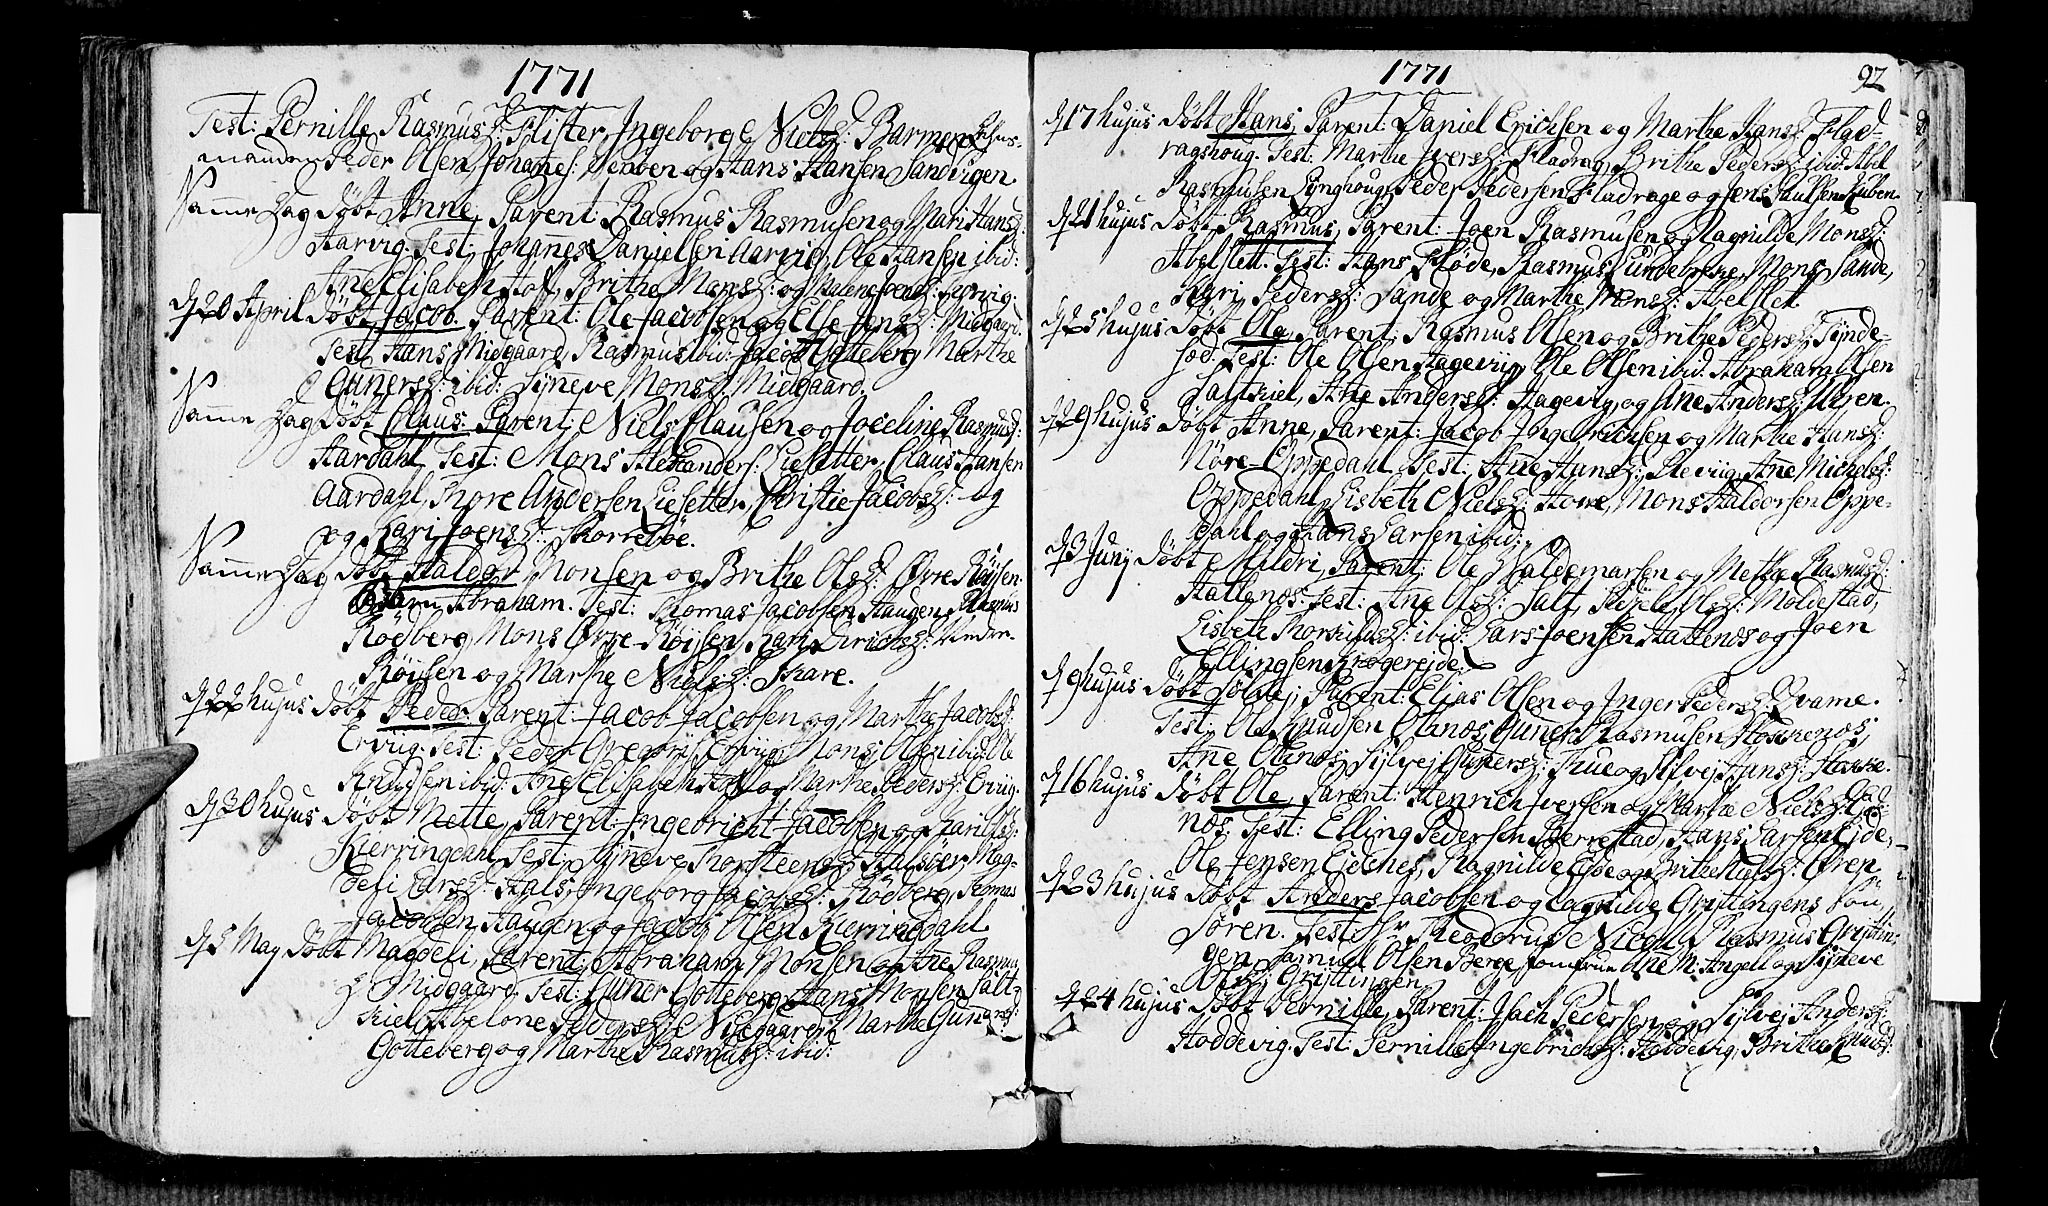 1771
Test: Pernille Rasmusd: Flister, Ingeborg Nielsd: Barmen, Huus-
manden Peder Olsen, Johannes og Hans Hansen Sandvigen.
Samme Dag Döbt Anne, Parent: Rasmus Rasmusen og Mari Hansd:
Aarvig. Test: Johannes Danielsen Aarvig, Ole Hansen ibid:
Ane Elisabeth Hof, Brithe Monsd: og Malene
d 20 April Döbt Jacob. Parent: Ole Jacobsen og Else Jensd: Midgaard.
Test: Hans Midgaard, Rasmus ibid: Jacob Gotteberg, Marthe
Gunersd: ibid: Synneve Monsd: Midgaard.
Samme Dag Döbt Claus. Parent: Niels Clausen og Joceline Rasmusd:
Aardahl, Test: Mons Alexanders: Liesetter, Claus Hansen
Aardahl, Thore Andersen Liesetter, Christie Jacobsd: og
og Kari Joensd: Skorrebøe.
Samme Dag Döbt Haldor, Monsen og Brithe Olsd: Øvre Röysen.
Barn Abraham. Test: Thomas Jacobsen Haugen, Rasmus
Rödberg, Mons Øvre-Röisen, Kari
Röysen og Marthe Nielsd: Skare.
d 22 hujus Döbt Peder. Parent: Jacob Jacobsen og Marthe Jacobsd:
Erviig. Test: Peder Erviig, Mons Olsen ibid: Ole
Knudsen ibid: Ane Elisabeth Hof og Marthe Pedersd: Erviig.
d 30 hujus Döbt Mette, Parent: Ingebricht Jacobsen og
Kierringdahl. Test: Synneve Thorsteensd: Halsöer, Mag-
deli Larsd: Hals, Ingeborg Jacobsd: Rödberg, Thomas
Jacobsen Haugen og Jacob Olsen Kierringdahl
d 5 May Döbt Magdeli, Parent: Abraham Monsen og Ane Rasmus
d: Midgaard. Test: Guner Gotteberg, Hans Monsen Salt-
kiel, Abelone Pedersd: Niegaaren, Marthe Gunersd:
Gotteberg og Marthe Rasmusd: ibid:
1771
92
d 17 hujus Döbt Hans, Parent: Daniel Ericksen og Marthe Hansd: Flad-
ragshoug. Test: Marthe Iversd: Fladrag, Brithe Pedersd: ibid: Abel
Rasmusen Lynghoug, Peder Pedersen Fladrage og Jens Paulsen
d 21 hujus Döbt Rasmus, Parent: Joen Rasmusen og Ragnilde Monsd:
Abelsett. Test: Hans Flöde, Rasmus Mons Sande,
Kari Pedersd: Sande og Marthe Monsd: Abelsett
d 25 hujus Döbt Ole, Parent: Rasmus Olsen og Brithe Pedersd: Tynde-
Test: Ole Olsen Hagevig, Ole Olsen ibid: Abraham Olsen
Saltkiel, Ane Andersd: Hagevig, og Ane Andersd:
d 29 hujus Döbt Anne, Parent: Jacob Ingebrichtsen og Marthe Hansd:
Nöre-Oppedahl. Test: Ane Hansd: Ane Michelsd:
Oppedahl, Lisbeth Nielsd: Howe, Mons Haldorsen Oppe-
dahl og Hans Larsen ibid:
d 3 Juny Döbt Mildri, Parent: Ole Waldemarsen og Mette Rasmusd:
Hattenes. Test: Ane Olsd: Salt, Sidzele Olsd: Moldestad,
Lisbeth ibid: Lars Joensen Hattenes og Joen
Ellingsen
d 9 hujus Döbt Parent: Elias Olsen og Inger Pedersd: Qvame.
Test: Ole Knudsen Otnes, Guner Rasmusen
Ane Otnes, Sylvej Gunersd: og Sylvej Hansd:
d 16 hujus Döbt Ole, Parent: Henrich Iversen og Marthe Nielsd:
nes. Test: Elling Pedersen Berrestad, Hans Larsen Eide,
Ole Jensen Eidsnes, Ragnilde Eide og Brithe Nielsd: Øren
d 23 hujus Döbt Anders Jacobsen og Ragnilde Gristingens Sön,
Sören. Test: Hr Theodorus Nicol. Rasmus Gristin-
gen, Samuel Olsen Berge, Jomfrue Ane M: Angell og Synneve
Olsd: Gristingen.
d 24 hujus Döbt Pernille, Parent: Isach Pedersen og Sylvej Andersd:
Hoddevig. Test: Pernille Ingebrichtsd: Hoddevig, Brithe Knudsd: